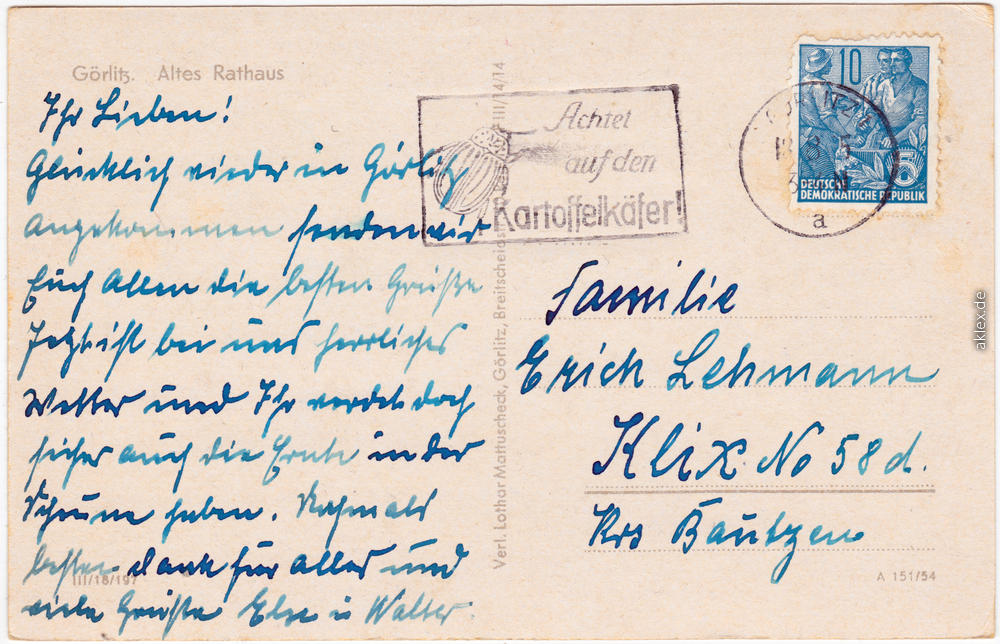 Görlitz. Altes Rathaus
Ihr Lieben!
Glücklich wieder in Görlitz
angekommen senden wir
Euch Allen die besten Grüße
Jetzt ist bei uns herrliches
Wetter und Ihr werdet doch
sicher auch die Ernte in der
Scheune haben. Nochmals
besten Dank für alles und
viele Grüße Else u Walter.
III/18/197
Verl. Lothar Mattuscheck, Görlitz, Breitscheidstr.
III/14/14
Achtet
auf den
Kartoffelkäfer!
10
5
DEUTSCHE
DEMOKRATISCHE REPUBLIK
a
Familie
Erich Lehmann
Klix No 58 d.
Krs Bautzen
A 151/54
aklex.de